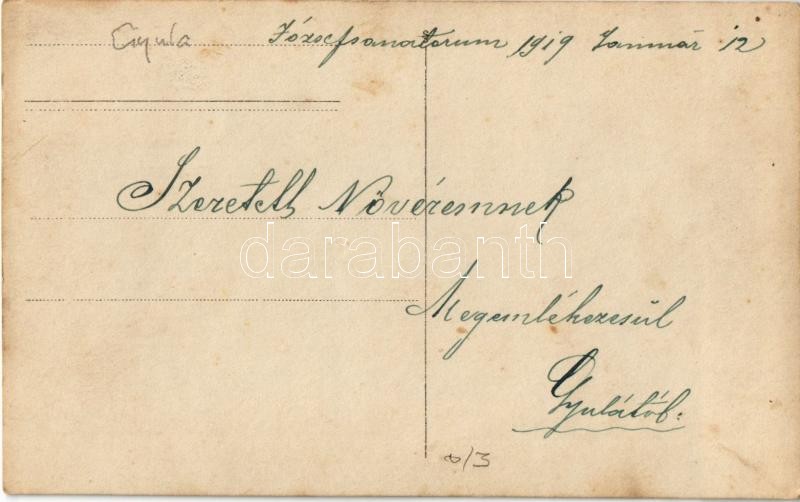 Gyula
Józsefsanatorium 1919 Januar 12
Szeretett Növéremnek
darabanth
Megemlékezesül
Gyulától.
8/3